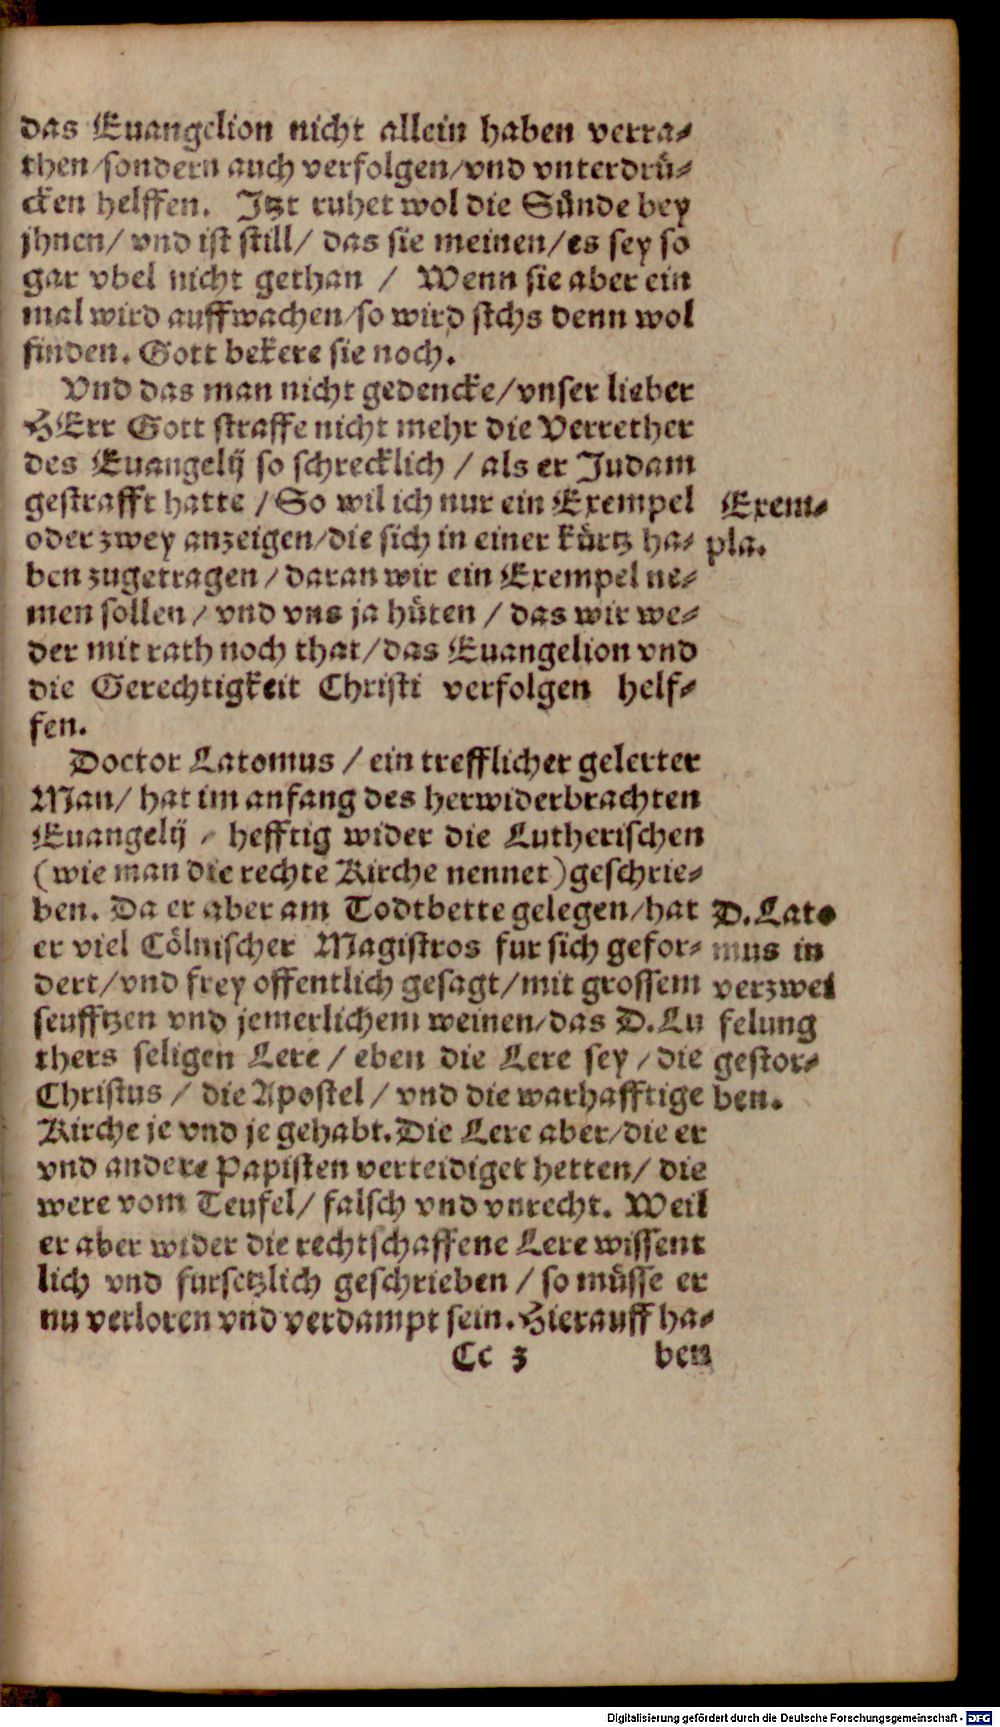 das Euangelion nicht allein haben verra⸗
then/sondern auch verfolgen/vnd vnterdruͤ⸗
cken helffen. Jtzt ruhet wol die Suͤnde bey
jhnen/ vnd ist still/ das sie meinen/es sey so
gar vbel nicht gethan / Wenn sie aber ein
mal wird auffwachen/so wird sichs denn wol
finden. Gott bekere sie noch.
Vnd das man nicht gedencke/vnser lieber
HErr Gott straffe nicht mehr die Verrether
des Euangelij so schrecklich / als er Judam
gestrafft hatte / So wil ich nur ein Exempel
oder zwey anzeigen/die sich in einer kuͤrtz ha⸗
ben zugetragen / daran wir ein Exempel ne⸗
men sollen / vnd vns ja huͤten / das wir we⸗
der mit rath noch that/das Euangelion vnd
die Gerechtigkeit Christi verfolgen helf⸗
fen.
Exem⸗
pla.
Doctor Latomus / ein trefflicher gelerter
Man/ hat im anfang des herwiderbrachten
Euangelij / hefftig wider die Lutherischen
(wie man die rechte Kirche nennet) geschrie⸗
ben. Da er aber am Todtbette gelegen/hat
er viel Coͤlnischer Magistros fur sich gefor⸗
dert/vnd frey offentlich gesagt/mit grossem
seufftzen vnd jemerlichem weinen/das D.Lu
thers seligen Lere / eben die Lere sey / die
Christus / die Apostel / vnd die warhafftige
Kirche je vnd je gehabt. Die Lere aber/die er
vnd andere Papisten verteidiget hetten/ die
were vom Teufel/ falsch vnd vnrecht. Weil
er aber wider die rechtschaffene Lere wissent
lich vnd fursetzlich geschrieben / so muͤsse er
nu verloren vnd verdampt sein. Hierauff ha⸗
D. Lato
mus in
verzwei
felung
gestor⸗
ben.
Cc 3 ben
Digitalisierung gefördert durch die Deutsche Forschungsgemeinschaft - DFG